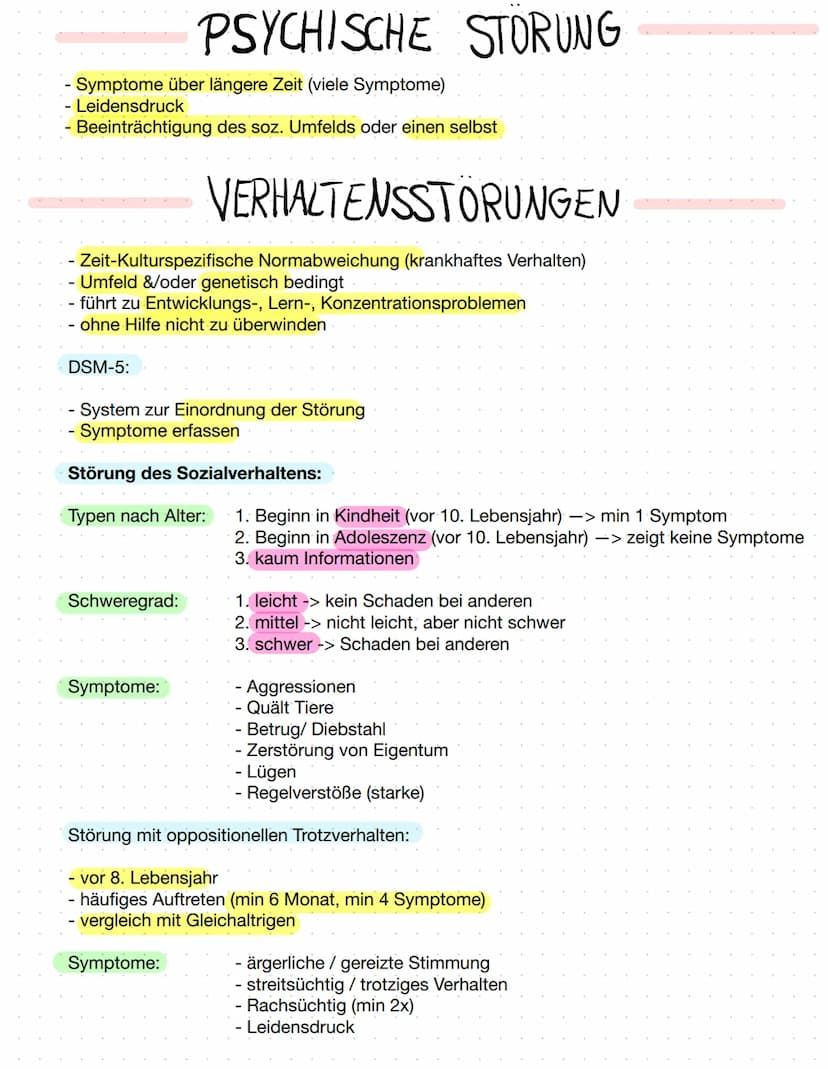 PSYCHISCHE STÖRUNG
- Symptome über längere Zeit (viele Symptome)
- Leidensdruck
- Beeinträchtigung des soz. Umfelds oder einen selbst
VERHALTENSSTÖRUNGEN
- Zeit-Kulturspezifische Normabweichung (krankhaftes Verhalten)
- Umfeld &/oder genetisch bedingt
- führt zu Entwicklungs-, Lern-, Konzentrationsproblemen
- ohne Hilfe nicht zu überwinden
DSM-5:
- System zur Einordnung der Störung
- Symptome erfassen
Störung des Sozialverhaltens:
Typen nach Alter: 1. Beginn in Kindheit (vor 10. Lebensjahr) —> min 1 Symptom
2. Beginn in Adoleszenz (vor 10. Lebensjahr) —> zeigt keine Symptome
3. kaum Informationen
Schweregrad: 1. leicht -> kein Schaden bei anderen
2. mittel -> nicht leicht, aber nicht schwer
3. schwer -> Schaden bei anderen
Symptome: - Aggressionen
- Quält Tiere
- Betrug/ Diebstahl
- Zerstörung von Eigentum
- Lügen
- Regelverstöße (starke)
Störung mit oppositionellen Trotzverhalten:
- vor 8. Lebensjahr
- häufiges Auftreten (min 6 Monat, min 4 Symptome)
- vergleich mit Gleichaltrigen
Symptome: - ärgerliche / gereizte Stimmung
- streitsüchtig / trotziges Verhalten
- Rachsüchtig (min 2x)
- Leidensdruck